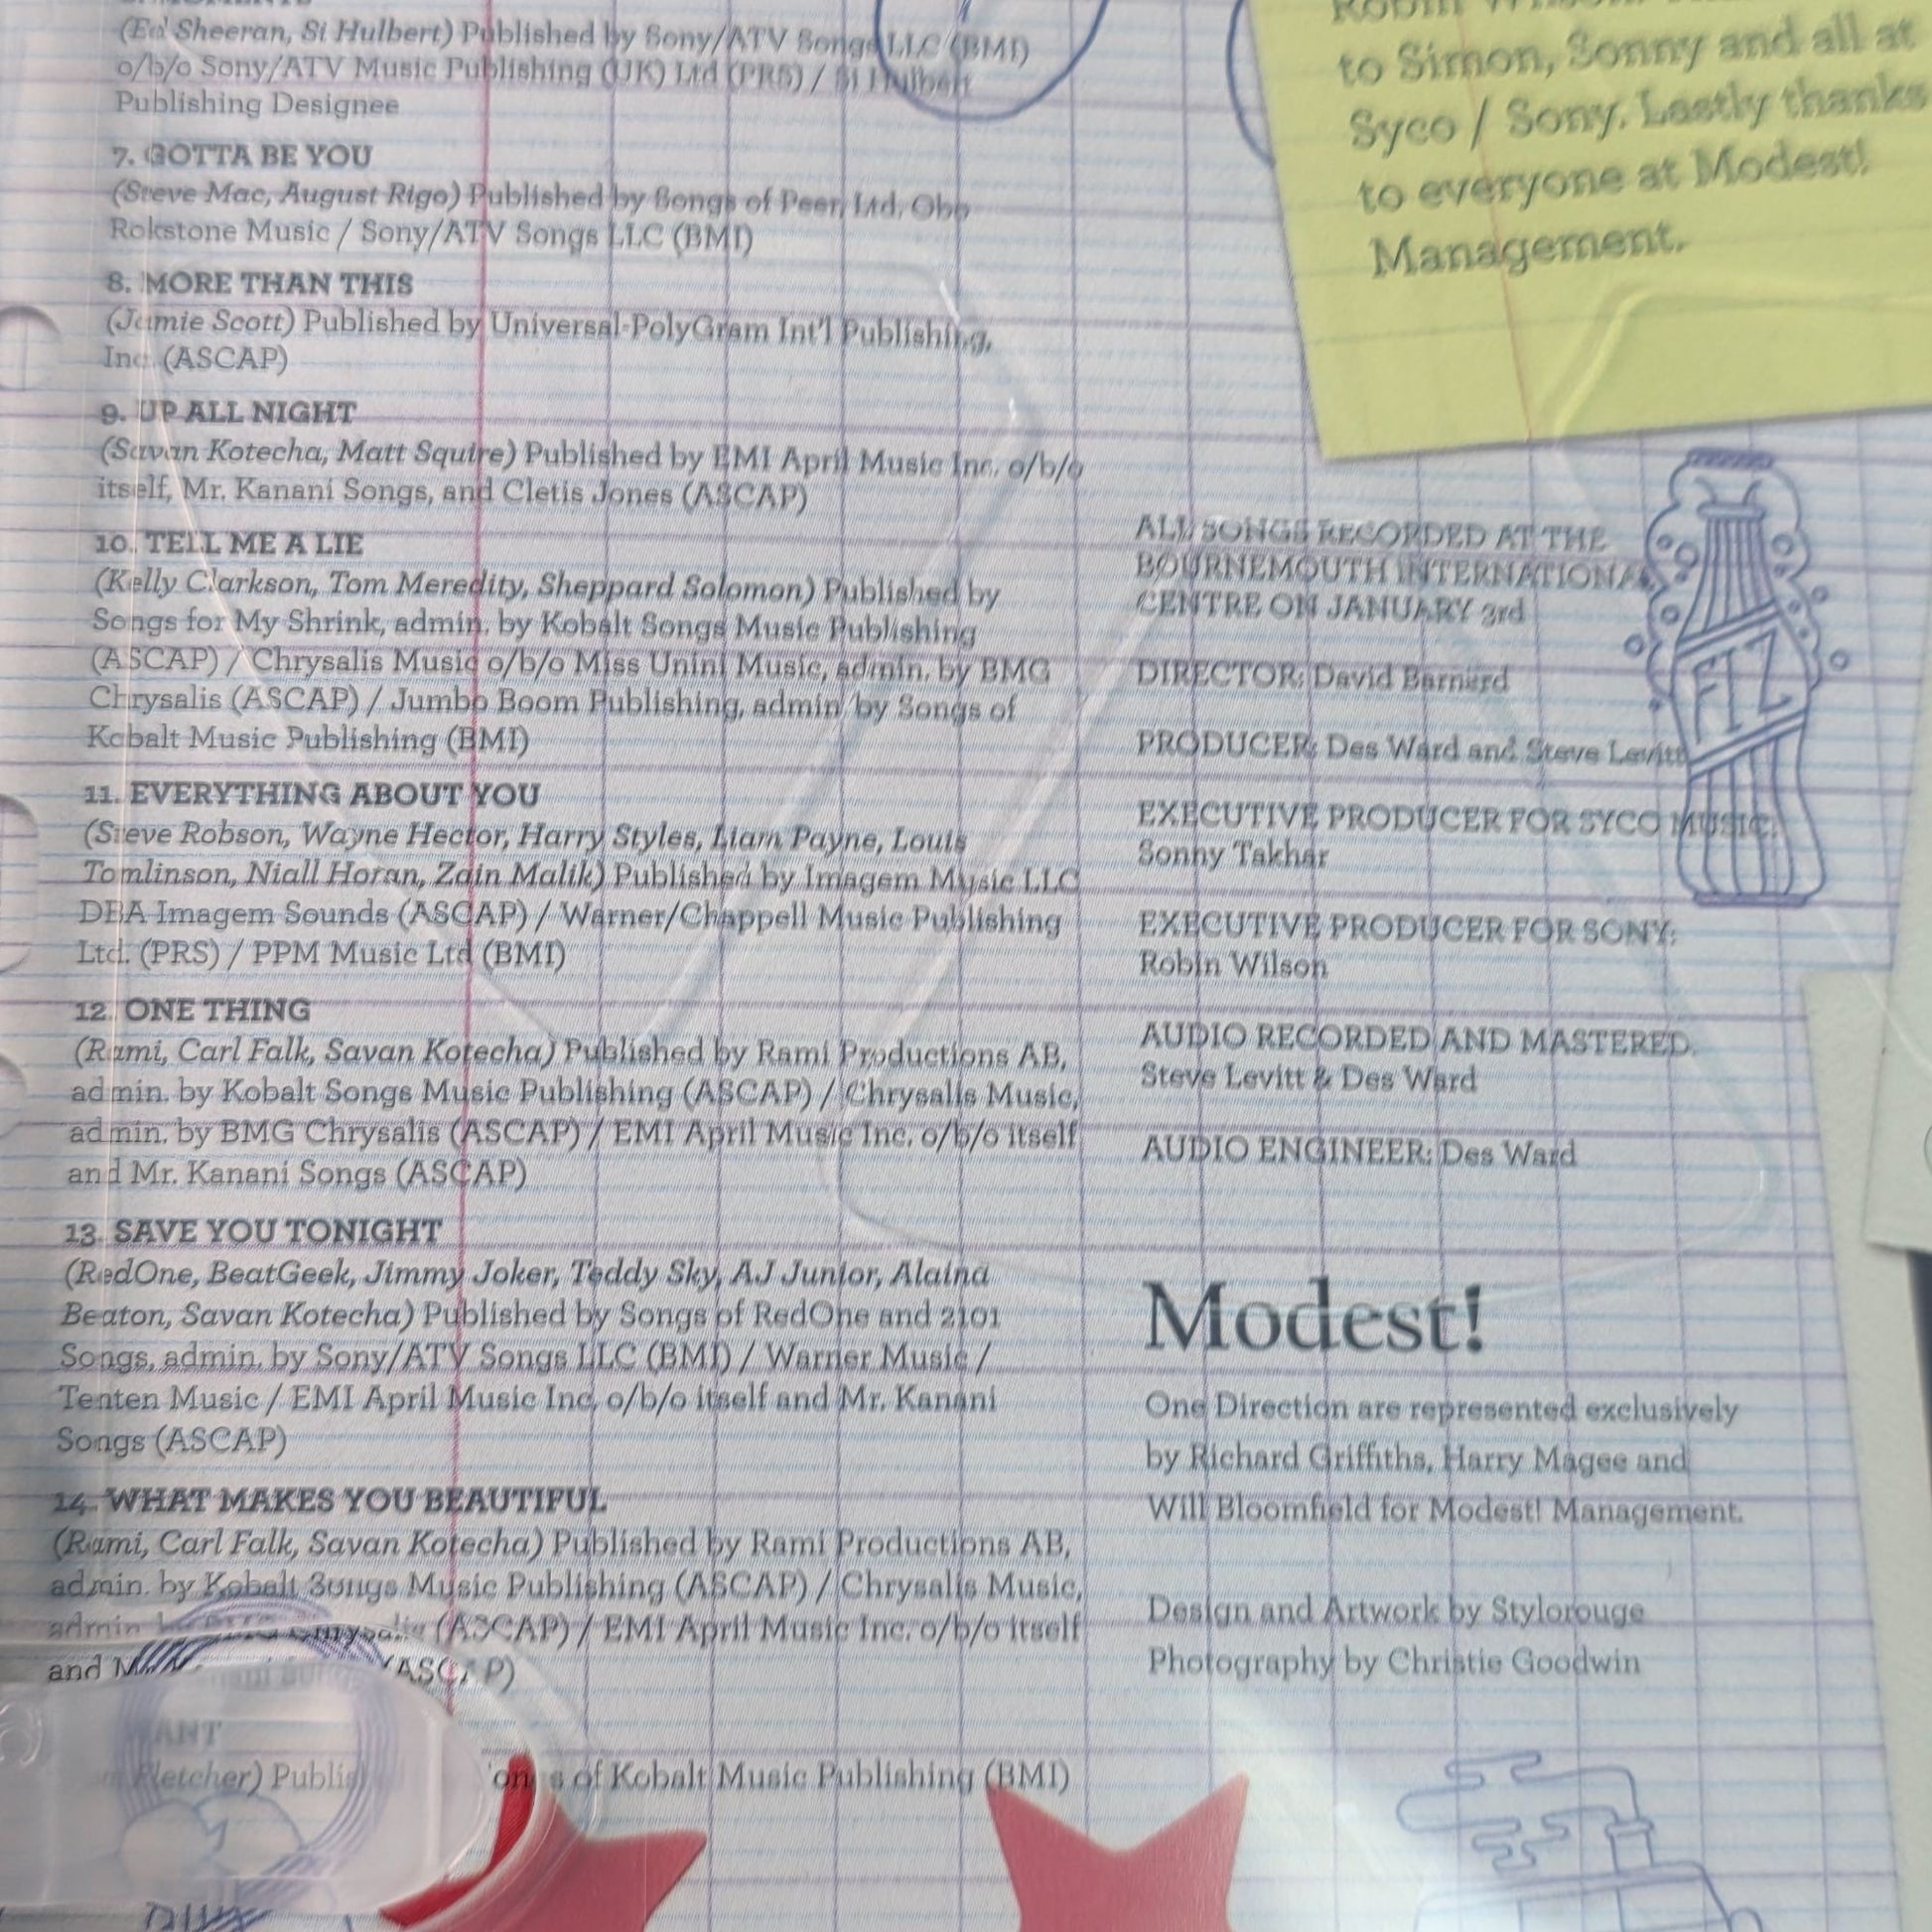 (Ed Sheeran, Si Hulbert) Published by Sony/ATV Songs LLC (BMI)
o/b/o Sony/ATV Music Publishing (UK) Ltd (PRS) / Si Hulbert
Publishing Designee
7. GOTTA BE YOU
(Steve Mac, August Rigo) Published by Songs of Peer, Ltd. Obo
Rokstone Music / Sony/ATV Songs LLC (BMI)
8. MORE THAN THIS
(Jamie Scott) Published by Universal-PolyGram Int'l Publishing,
Inc. (ASCAP)
9. UP ALL NIGHT
(Savan Kotecha, Matt Squire) Published by EMI April Music Inc. o/b/o
itself, Mr. Kanani Songs, and Cletis Jones (ASCAP)
10. TELL ME A LIE
(Kelly Clarkson, Tom Meredity, Sheppard Solomon) Published by
Songs for My Shrink, admin. by Kobalt Songs Music Publishing
(ASCAP) / Chrysalis Music o/b/o Miss Unini Music, admin. by BMG
Chrysalis (ASCAP) / Jumbo Boom Publishing, admin by Songs of
Kobalt Music Publishing (BMI)
11. EVERYTHING ABOUT YOU
(Steve Robson, Wayne Hector, Harry Styles, Liam Payne, Louis
Tomlinson, Niall Horan, Zain Malik) Published by Imagem Music LLC
DBA Imagem Sounds (ASCAP) / Warner/Chappell Music Publishing
Ltd. (PRS) / PPM Music Ltd (BMI)
12. ONE THING
(Rami, Carl Falk, Savan Kotecha) Published by Rami Productions AB,
admin. by Kobalt Songs Music Publishing (ASCAP) / Chrysalis Music,
admin. by BMG Chrysalis (ASCAP) / EMI April Music Inc. o/b/o itself
and Mr. Kanani Songs (ASCAP)
13. SAVE YOU TONIGHT
(RedOne, BeatGeek, Jimmy Joker, Teddy Sky, AJ Junior, Alaina
Beaton, Savan Kotecha) Published by Songs of RedOne and 2101
Songs, admin. by Sony/ATV Songs LLC (BMI) / Warner Music /
Tenten Music / EMI April Music Inc. o/b/o itself and Mr. Kanani
Songs (ASCAP)
14. WHAT MAKES YOU BEAUTIFUL
(Rami, Carl Falk, Savan Kotecha) Published by Rami Productions AB,
admin. by Kobalt Songs Music Publishing (ASCAP) / Chrysalis Music,
admin (ASCAP) / EMI April Music Inc. o/b/o itself
and (ASCAP)
WANT
Fletcher) of Kobalt Music Publishing (BMI)
to Simon, Sonny and all at
Syco / Sony. Lastly thanks
to everyone at Modest!
Management.
FIZ
ALL SONGS RECORDED AT THE
BOURNEMOUTH INTERNATIONAL
CENTRE ON JANUARY 3rd
DIRECTOR: David Barnard
PRODUCER: Des Ward and Steve Levitt
EXECUTIVE PRODUCER FOR SYCO MUSIC:
Sonny Takhar
EXECUTIVE PRODUCER FOR SONY:
Robin Wilson
AUDIO RECORDED AND MASTERED:
Steve Levitt & Des Ward
AUDIO ENGINEER: Des Ward
Modest!
One Direction are represented exclusively
by Richard Griffiths, Harry Magee and
Will Bloomfield for Modest! Management.
Design and Artwork by Stylorouge
Photography by Christie Goodwin